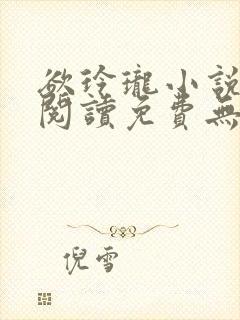 欲玲瓏小說
閱讀免費無
倪雪